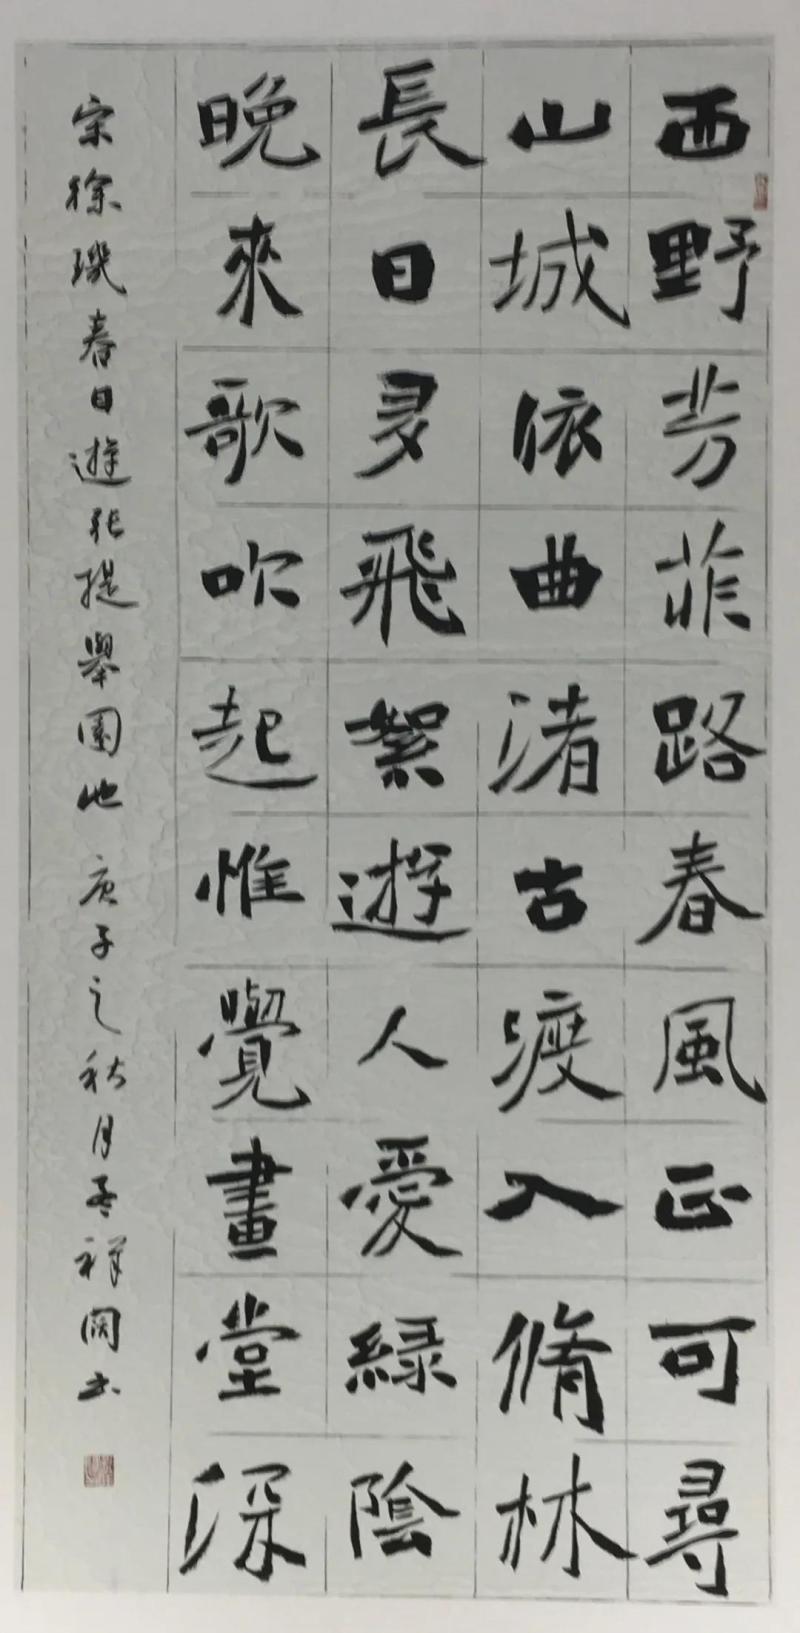 西野芳菲路春風正可尋
山城依曲渚古渡入脩林
長日多飛絮遊人愛綠陰
晚來歌吹起惟覺畫堂深
宋徐璣春日遊張提舉園池 庚子之秋月李祥闊書